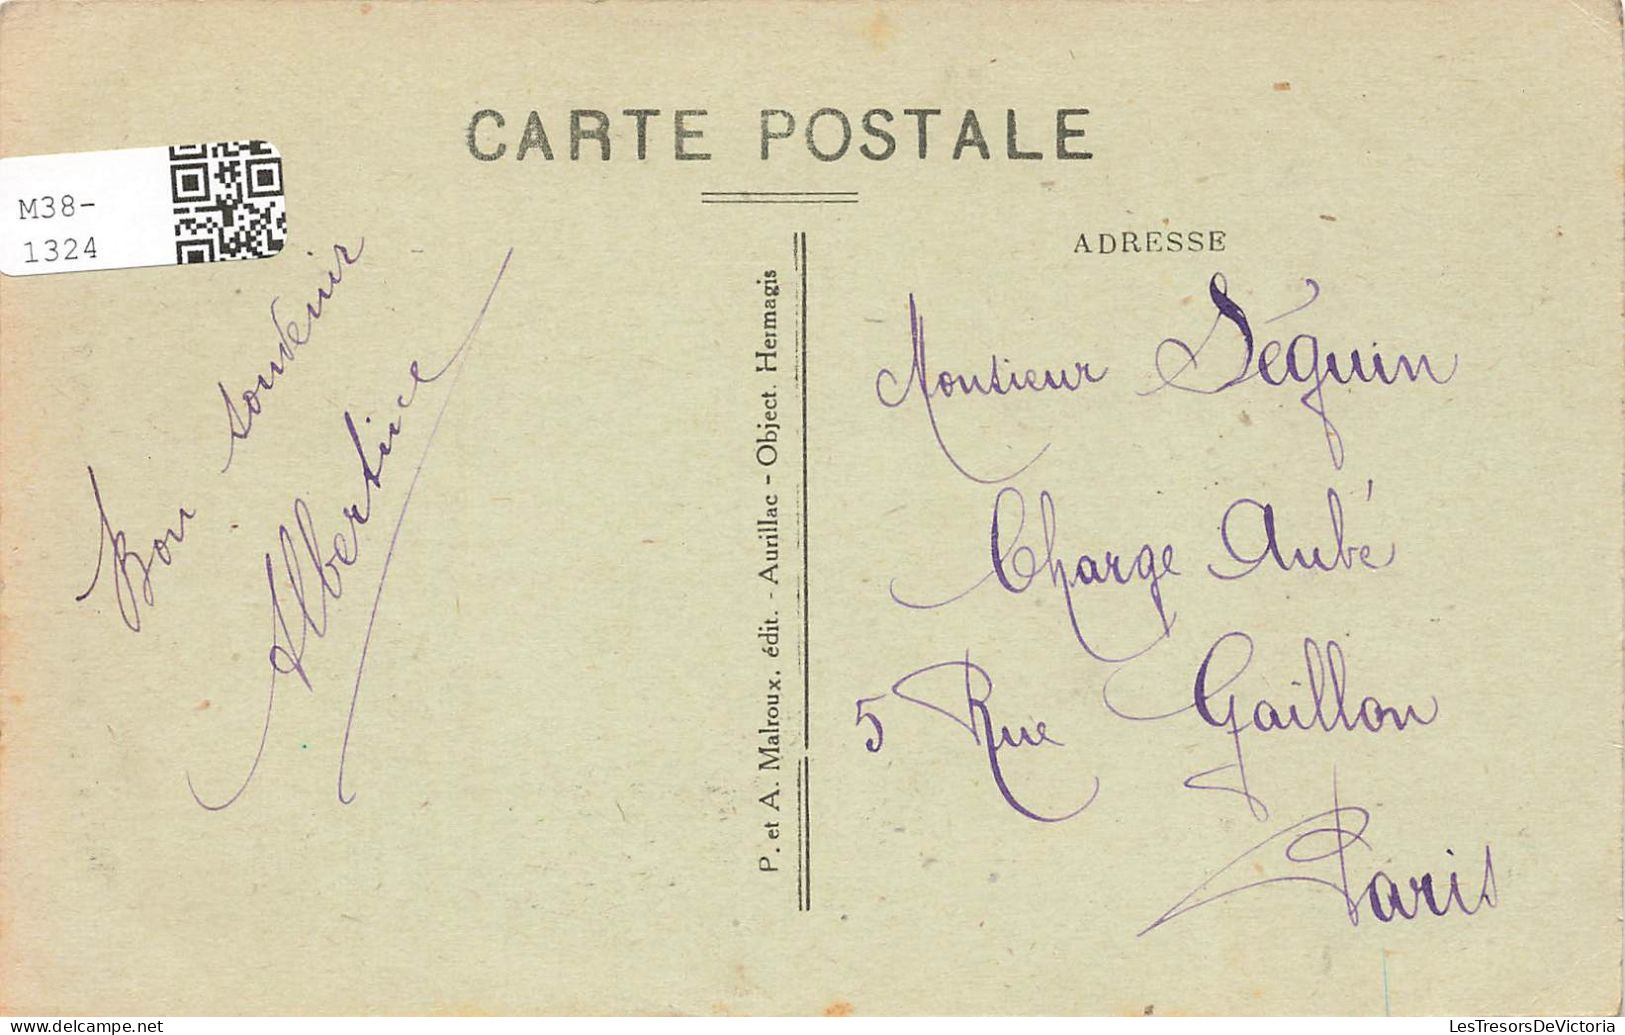 CARTE POSTALE
M38-
1324
ADRESSE
Bon souvenir
Albertine
P. et A. Malroux, édit. - Aurillac - Object. Hermagis
Monsieur Séguin
Charge Aubé
5 Rue Gaillon
Paris
delcampe.net
LesTresorsDeVictoria